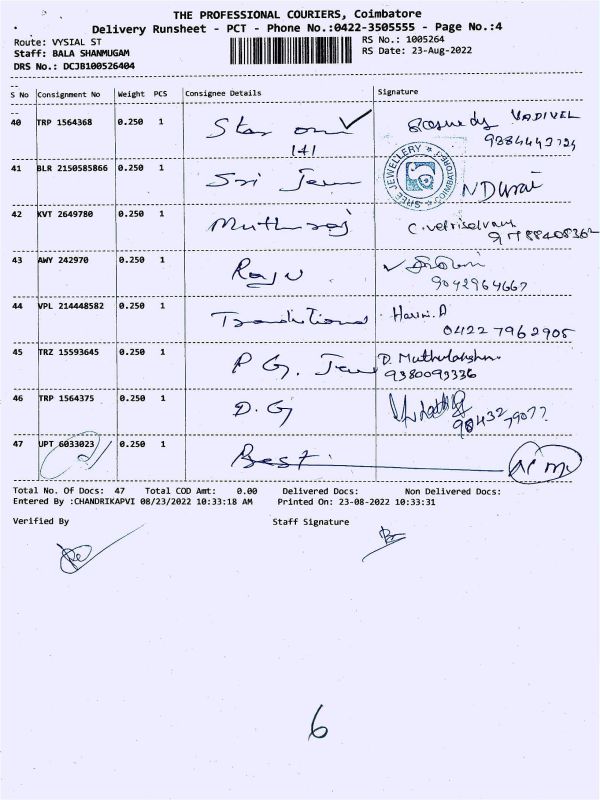 THE PROFESSIONAL COURIERS, Coimbatore
Delivery Runsheet - PCT - Phone No.:0422-3505555 - Page No.:4
Route: VYSIAL ST
RS No.: 1005264
Staff: BALA SHANMUGAM
RS Date: 23-Aug-2022
DRS No.: DCJB100526404
S No Consignment No Weight PCS Consignee Details Signature
40 TRP 1564368 0.250 1 Star VADIVEL
141
41 BLR 2150585866 0.250 1 Sri Jew N Durai
SREE JEWELLERY
42 KVT 2649780 0.250 1 Muthuraj C. Vetriselvam
43 AWY 242970 0.250 1 Raju
9042964667
44 VPL 214448582 0.250 1 Traditional Harini. A
04227962905
45 TRZ 15593645 0.250 1 P G. Jew D. Muthulakshmi
9380093336
46 TRP 1564375 0.250 1 D. G
47 UPT 6033023 0.250 1 Best
Total No. Of Docs: 47 Total COD Amt: 0.00 Delivered Docs: Non Delivered Docs:
Entered By :CHANDRIKAPVI 08/23/2022 10:33:18 AM Printed On: 23-08-2022 10:33:31
Verified By Staff Signature
6